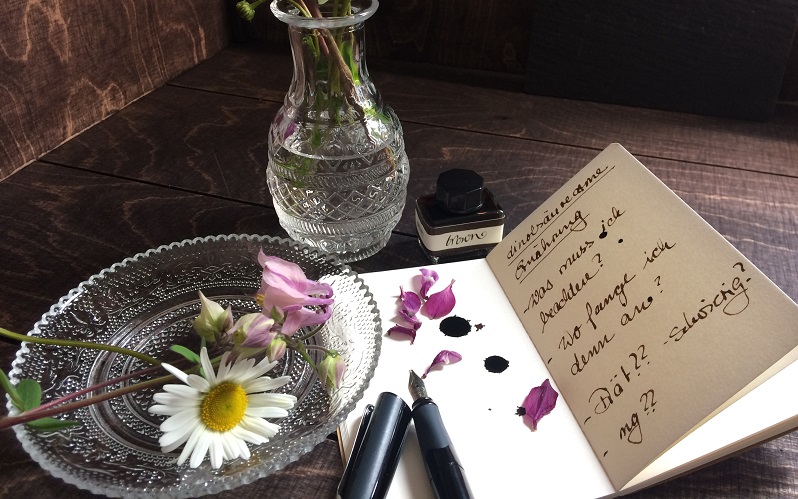 brown
aminosäurearme
Ernährung
- Was muss ich
beachten?
- Wo fange ich
denn an?
- Diät?? - Schwierig?
- ng??